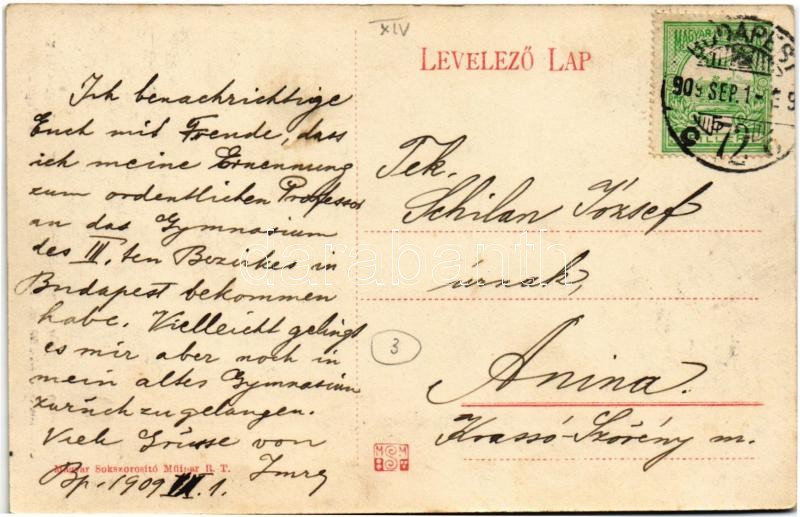 XIV
LEVELEZŐ LAP
Ich benachrichtige
Euch mit Freude, dass
ich meine Ernennung
zum ordentlichen Professor
an das Gymnasium
des III. ten Bezirkes in
Budapest bekommen
habe. Vielleicht gelingt
es mir aber noch in
mein altes Gymnasium
zurück zu gelangen.
Viele Grüsse von
Imre
Bp. 1909 IX. 1.
Magyar Sokszorosító Műipar R. T.
MAGYAR
BUDAPEST
909 SEP. 1
72
Tek.
Schilan József
úrnak,
Anina.
Krassó-Szörény m.
3
darabanth